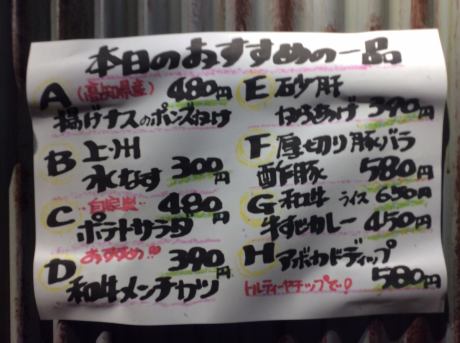 本日のおすすめの一品
A (高知県産) 480円
揚げナスのポンズかけ
B 上州
水なす 300円
C 自家製 480円
ポテトサラダ
おすすめ!!
D 390円
和牛メンチカツ
E 砂肝
からあげ 390円
F 厚切り豚バラ
酢豚 580円
G 和牛 ライス 650円
牛すじカレー 450円
H アボカドディップ
トルティーヤチップで! 580円